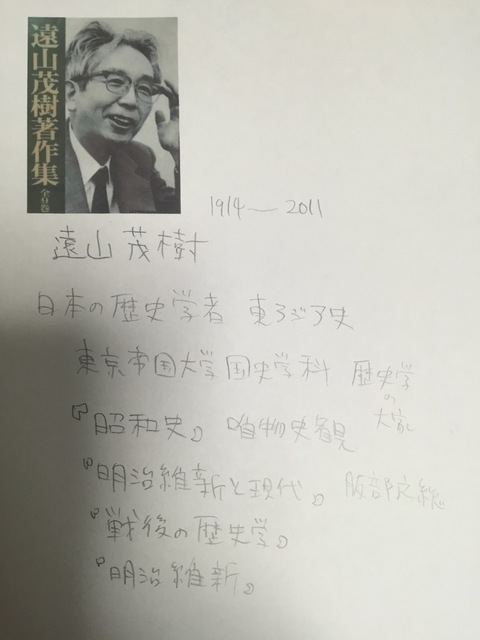 遠山茂樹著作集 全9巻
1914—2011
遠山茂樹
日本の歴史学者 東アジア史
東京帝国大学国史学科 歴史学の大家
『昭和史』 唯物史観
『明治維新と現代』 服部之総
『戦後の歴史学』
『明治維新』